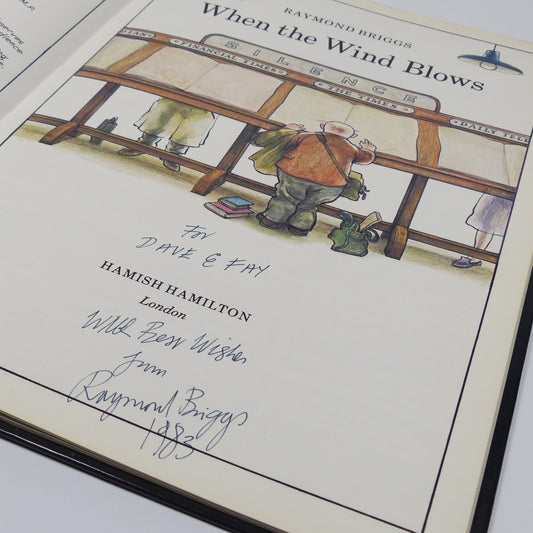 RAYMOND BRIGGS
When the Wind Blows
SILENCE
FINANCIAL TIMES
THE TIMES
DAILY TELE
For
DAVE & FAY
HAMISH HAMILTON
London
With Best Wishes
from
Raymond Briggs
1983